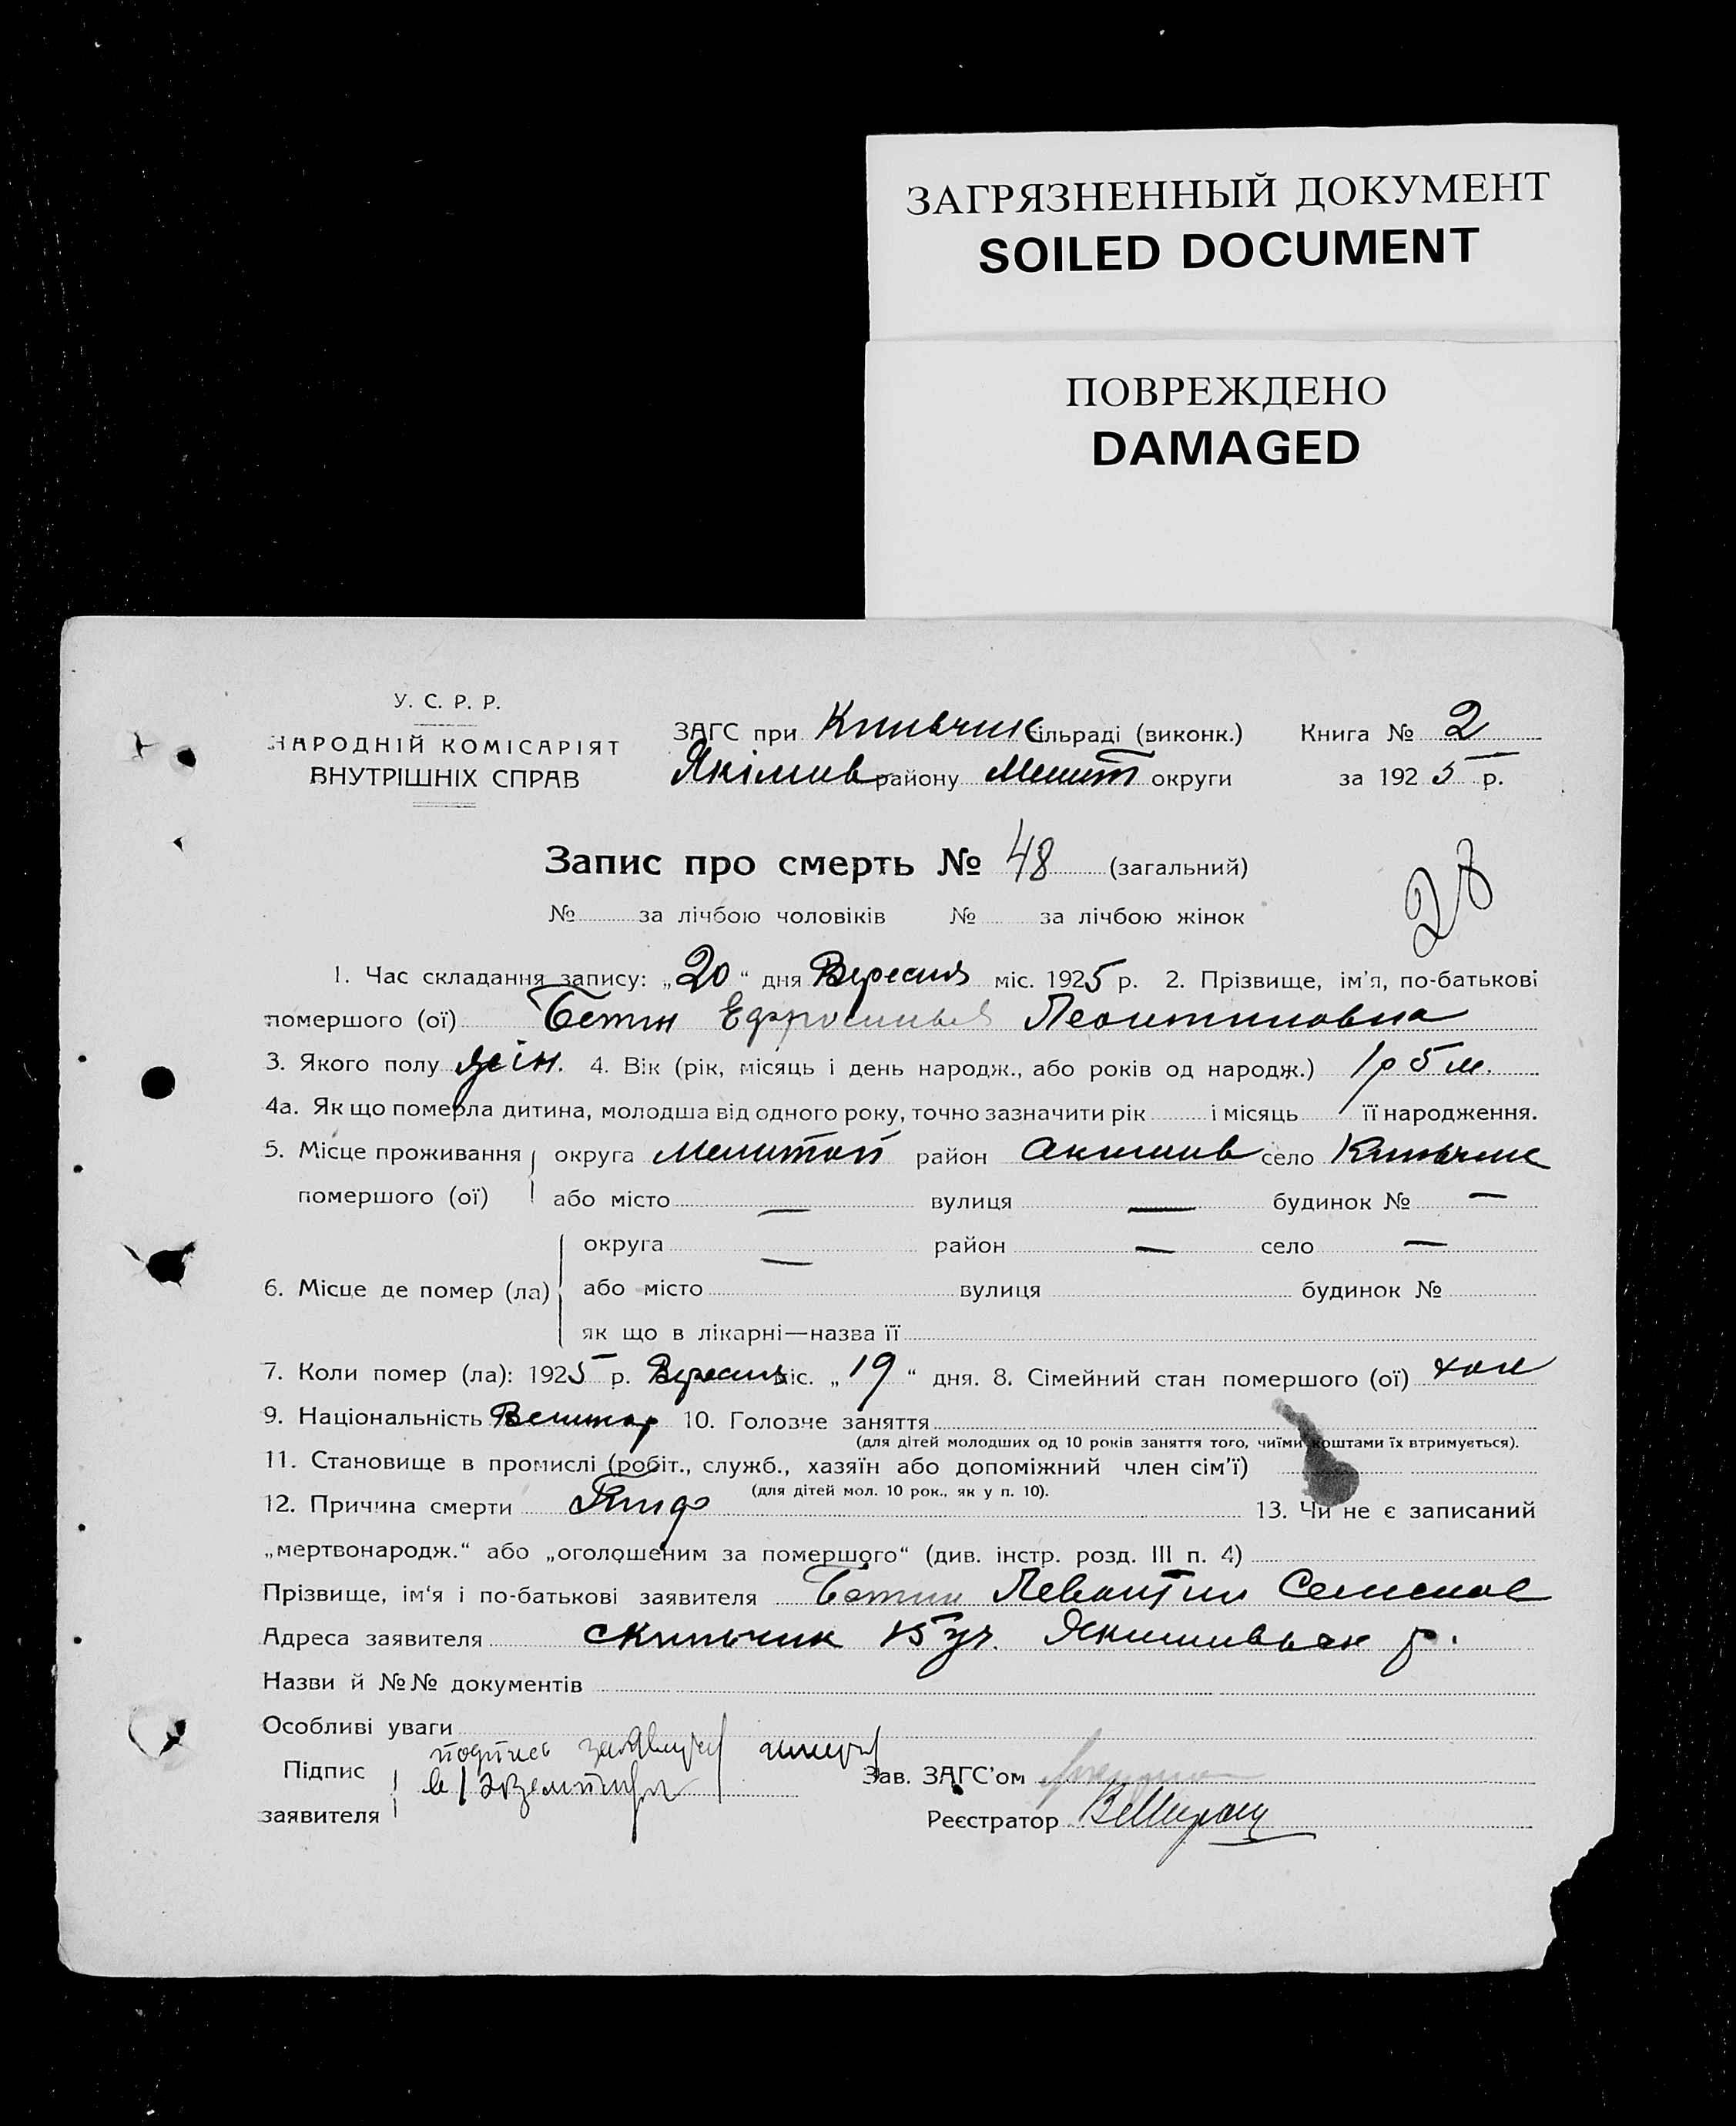 ЗАГРЯЗНЕННЫЙ ДОКУМЕНТ
SOILED DOCUMENT
ПОВРЕЖДЕНО
DAMAGED
У. С. Р. Р.
НАРОДНІЙ КОМІСАРІЯТ
ВНУТРІШНІХ СПРАВ
ЗАГС при сільраді (виконк.) Книга № 2
Якімив району Мелит округи за 1925 р.
Запис про смерть № 48 (загальний)
28
№ за лічбою чоловіків № за лічбою жінок
1. Час складання запису: „20“ дня Вересня міс. 1925 р. 2. Прізвище, ім'я, по-батькові
помершого (ої) Леонтиновна
3. Якого полу жін. 4. Вік (рік, місяць і день народж., або років од народж.) 1р 5 м.
4а. Як що померла дитина, молодша від одного року, точно зазначити рік і місяць її народження.
5. Місце проживання округа Мелитоп район Акимив село
помершого (ої) або місто — вулиця — будинок № —
округа — район — село —
6. Місце де помер (ла) або місто вулиця будинок №
як що в лікарні—назва її
7. Коли помер (ла): 1925 р. Вересня міс. „19“ дня. 8. Сімейний стан помершого (ої)
9. Національність 10. Головне заняття
(для дітей молодших од 10 років заняття того, чиїми коштами їх втримується).
11. Становище в промислі (робіт., служб., хазяїн або допоміжний член сім'ї)
(для дітей мол. 10 рок., як у п. 10).
12. Причина смерти Тиф 13. Чи не є записаний
„мертвонародж.“ або „оголошеним за помершого“ (див. інстр. розд. III п. 4)
Прізвище, ім'я і по-батькові заявителя Левонтин Семенов
Адреса заявителя
Назви й №№ документів
Особливі уваги
Підпис
заявителя
Зав. ЗАГС'ом
Реєстратор